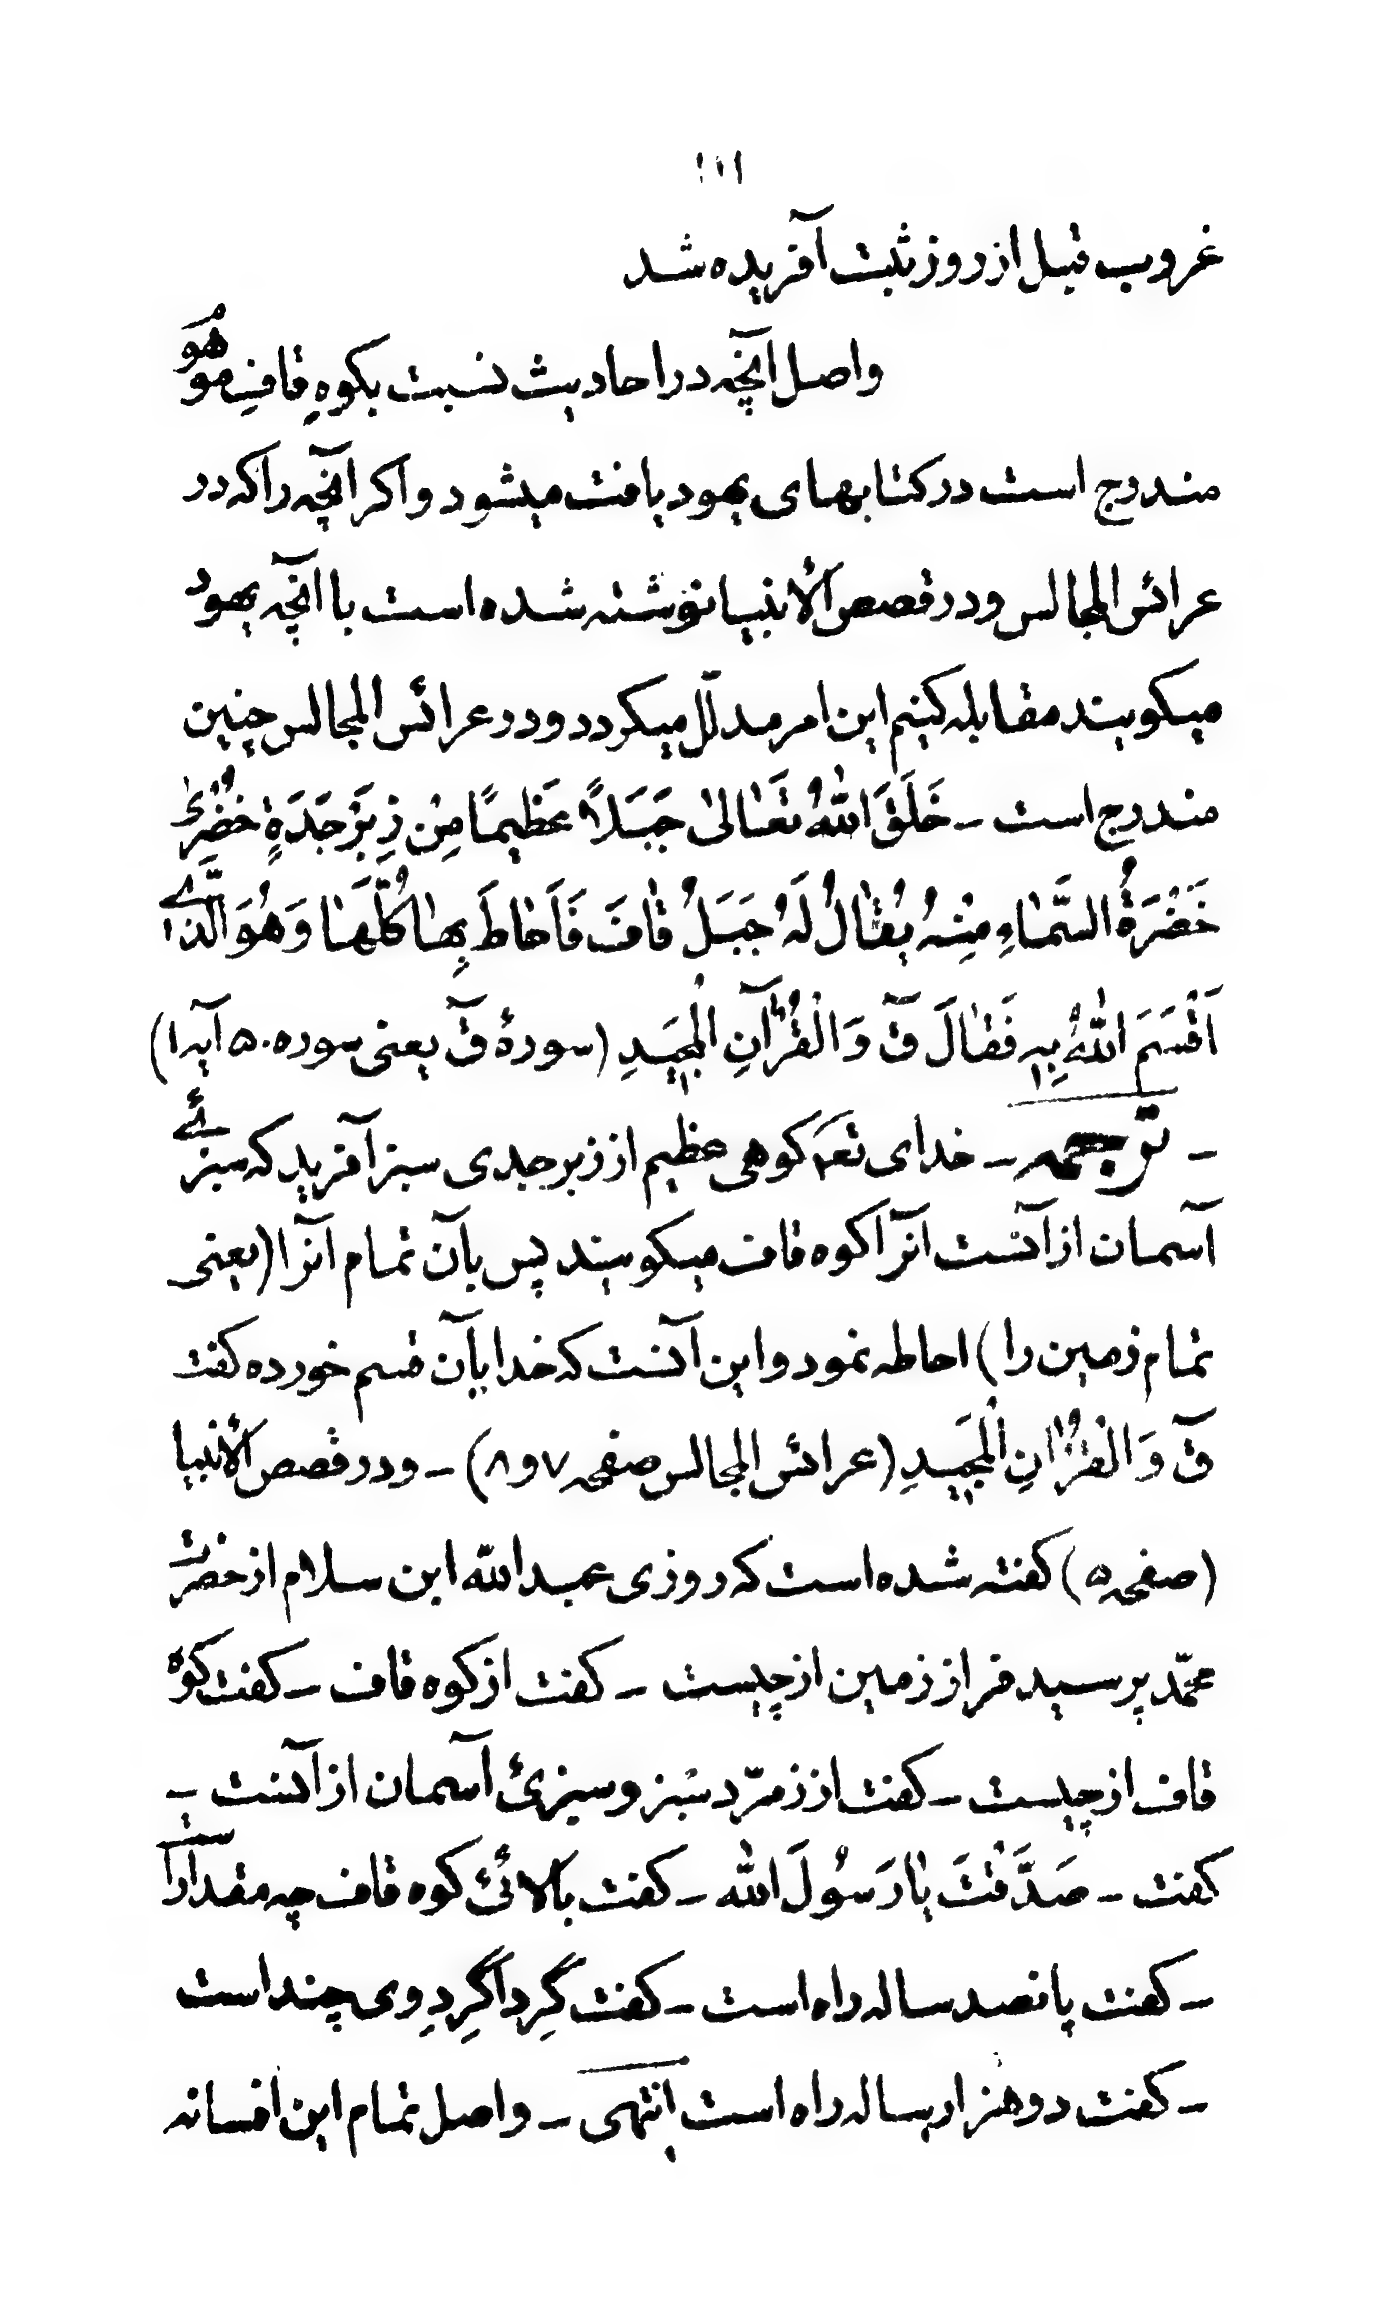 ۱۱۱
غروب قبل از روز ثبت آفریده شد
واصل آنچه در احادیث نسبت بکوهِ قافِ موهُو
مندرج است در کتابهای یهود یافت میشود و اکر آنچه را که در
عرائس المجالس و در قصص الأنبیا نوشته شده است با آنچه یهود
میکویند مقابله کنیم این امر مدلّل میکردد و در عرائس المجالس چنین
مندرج است – خَلَقَ اللهُ تَعَالیٰ جَبَلاً عَظِیمًا مِن زِبَرْجَدَةٍ خَضْرٰیٰ
خَضْرَةُ السَّمَاءِ مِنْهُ یُقَالُ لَهُ جَبَلُ قَاف فَاَحَاطَ بِهَا کُلِّهَا وَهُوَ الَّذِی
اَقْسَمَ اللهُ بِهِ فَقَالَ قٓ وَالْقُرْآنِ الْمَجِیدِ (سورهٔ قٓ یعنی سوره ۵۰ آیه ۱)
– ترجمه – خدای تعم کوهی عظیم از زبرجدی سبز آفرید که سبزئے
آسمان از آنست آنرا کوه قاف میکویند پس بآن تمام آنرا (یعنی
تمام زمین را) احاطه نمود و این آنست که خدا بآن قسم خورده کفت
قٓ وَالْقُرْانِ الْمَجِیدِ (عرائس المجالس صفحه ۷ و ۸) – و در قصص الأنبیا
(صفحه ۵) کفته شده است که روزی عبدالله ابن سلام از حضرت
محمّد پرسید فراز زمین از چیست – کفت از کوه قاف – کفت کوه
قاف از چیست – کفت از زمرّد سبز و سبزیٔ آسمان از آنست –
کفت – صَدَّقْتَ یَا رَسُولَ الله – کفت بالائیٔ کوه قاف چه مقدار است
– کفت پانصد ساله راه است – کفت گِرداگِردِ وی چند است
– کفت دو هزار ساله راه است انتهی – واصل تمام این افسانه